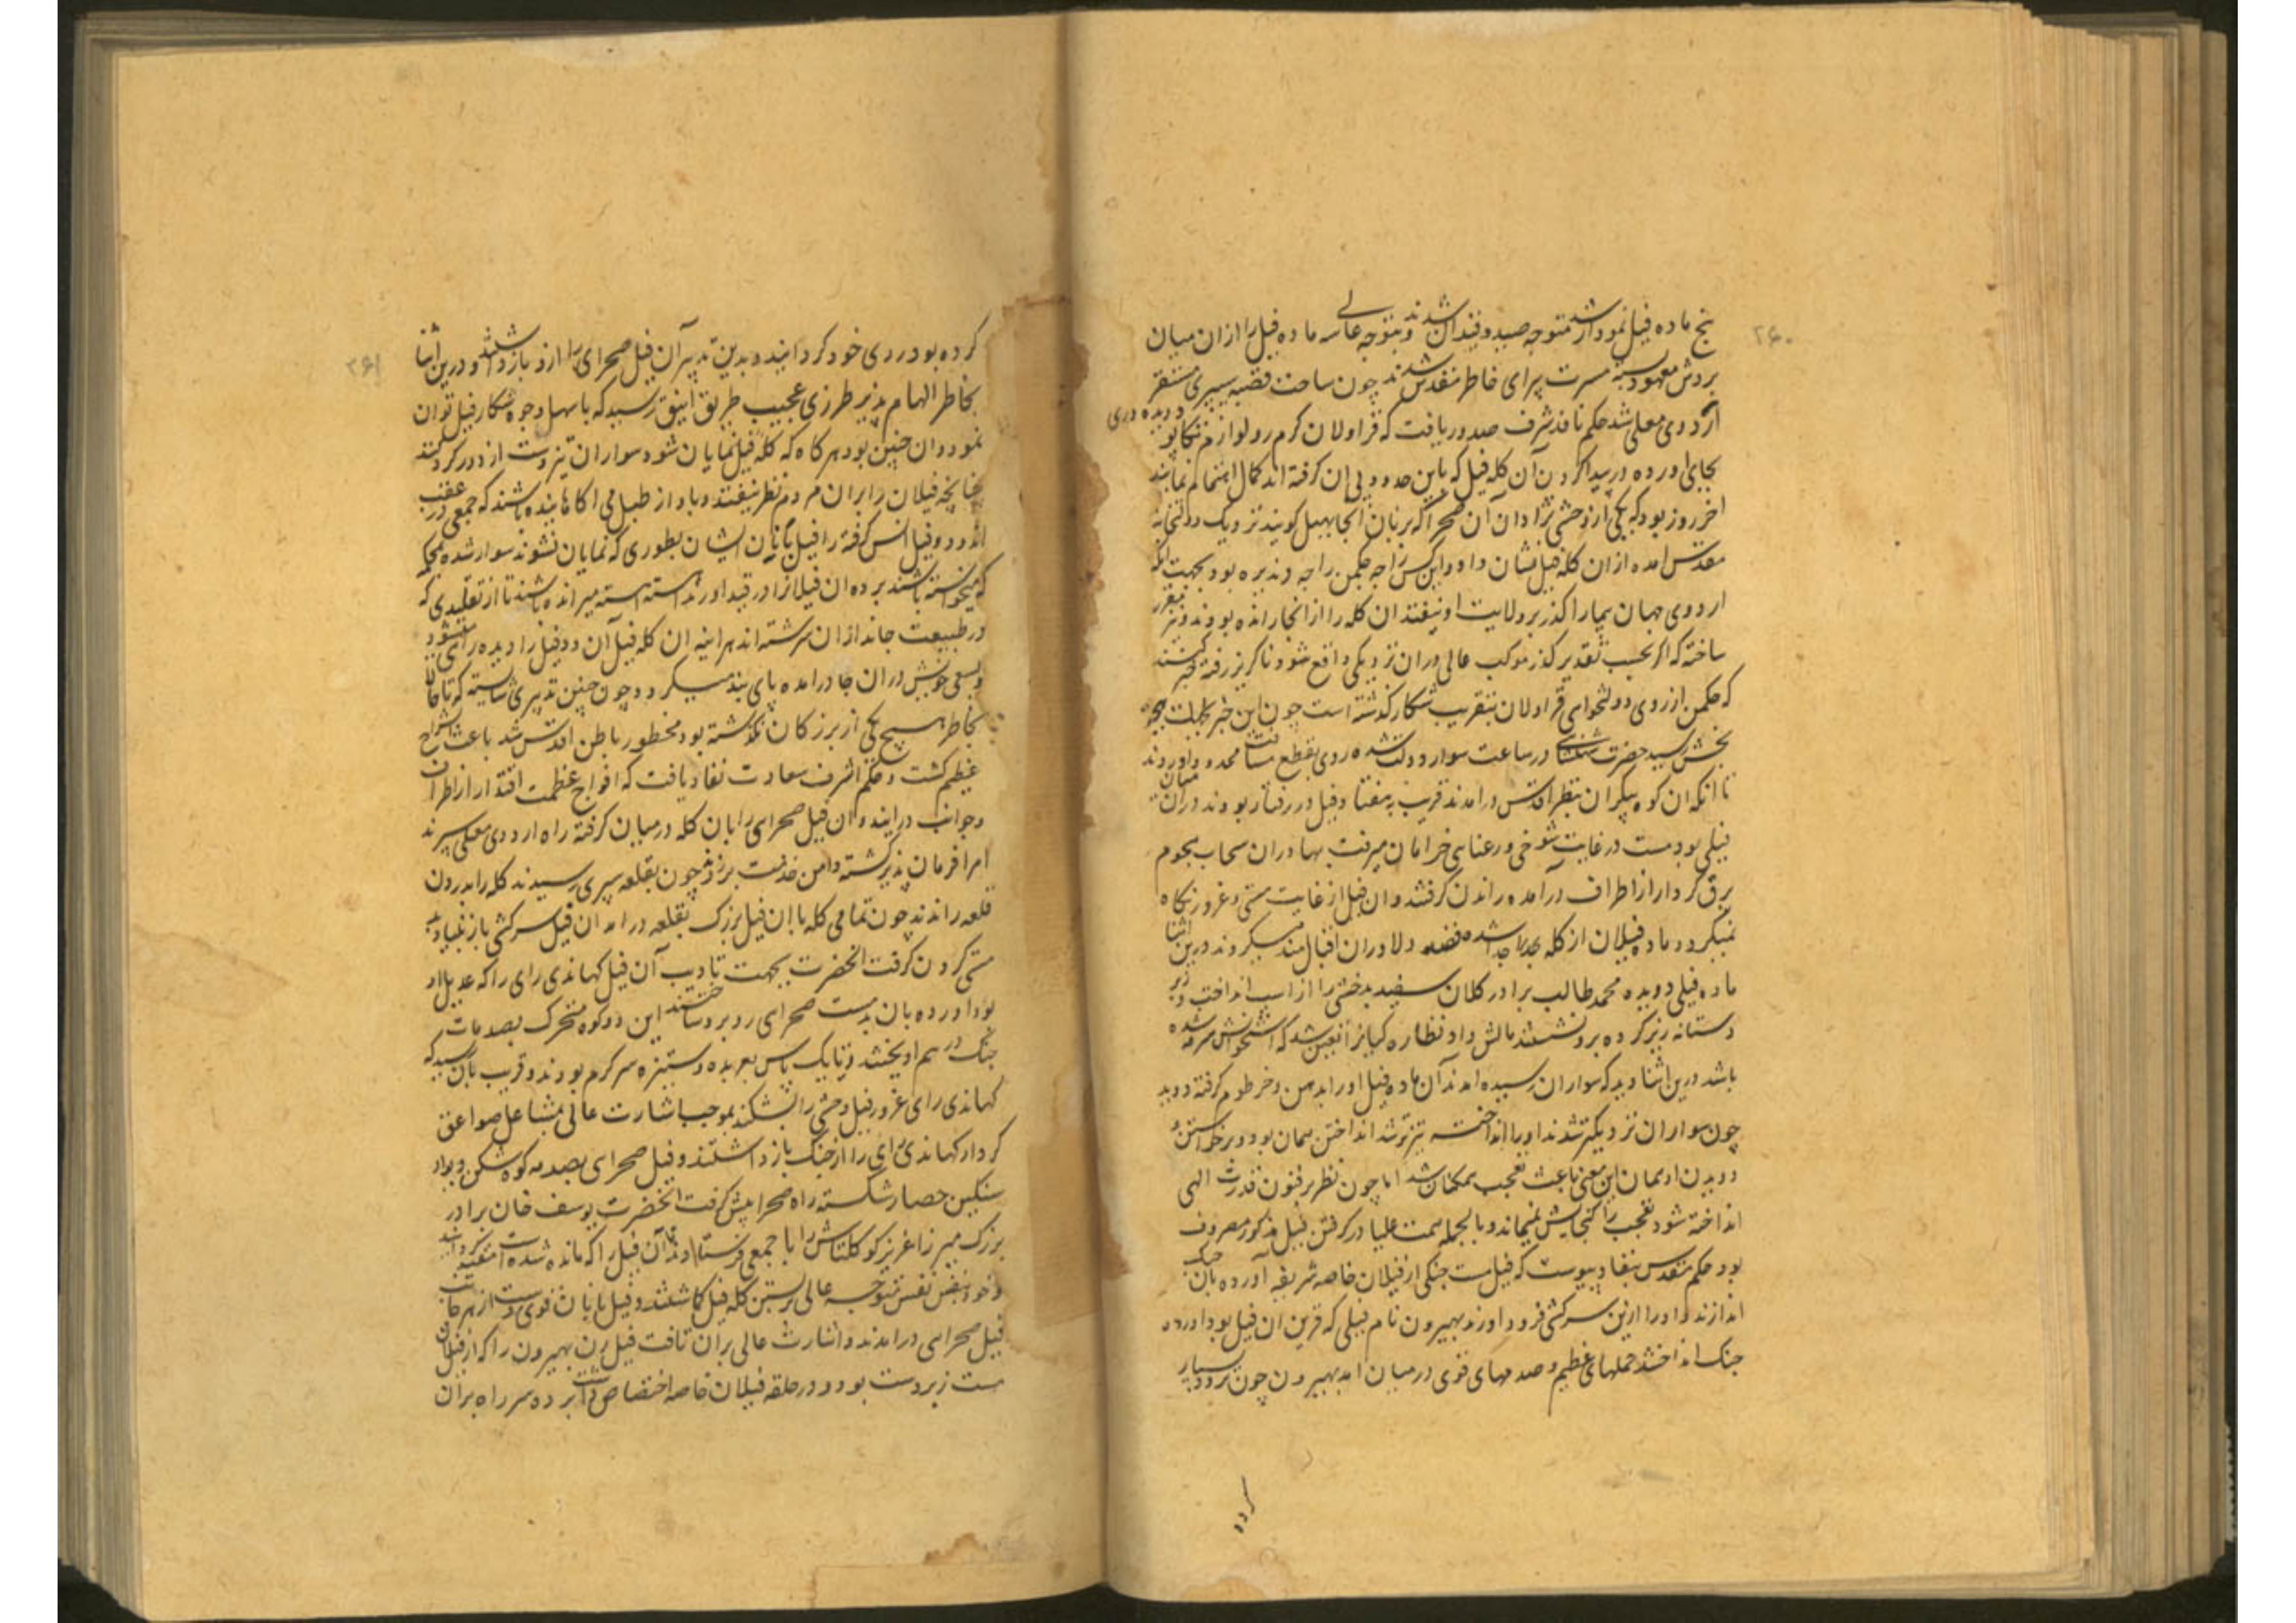 ۲۶۰
پنج ماده فیل نمودار شد متوجه صید و قید آن شدند و بتوجه عالی سه ماده فیل را ازان میان
بروش معهود بسته مسرت پیرای خاطر مقدس شدند چون ساحت قصبه سیپری مستقر
اردوی معلی شد حکم نافذ شرف صدور یافت که قراولان گرم رو لوازم تکاپو و دیده وری
بجای اورده در پیدا کردن آن کله فیل که باین حدود پی ان گرفته اند کمال اهتمام نمایند
اخر روز بود که یکی از وحشی نژادان آن صحرا که بزبان انجا بهیل گویند نزدیک دولتخانه
مقدس امده ازان کله فیل نشان داد و این کس راجه جکمن راجه دندیره بود بجهت انکه
اردوی جهان پیما را گذر بر ولایت او نیفتد ان کله را از انجا رانده بودند و مقرر
ساخته که اگر بحسب تقدیر گذر موکب عالی دران نزدیکی واقع شود ناگزیر رفته
که جکمن از روی دولتخواهی قراولان بتقریب شکار گذشته است چون این خبر بهجت
بخش رسید حضرت شاهنشاهی در ساعت سوار دولت شده روی بقطع مسافت محدود آوردند
تا انکه ان کوه پیکران بنظر اقدس درامدند قریب بهفتاد فیل در رفتار بودند دران میان
فیلی بود مست در غایت شوخی و رعنایی خرامان میرفت بهادران سحاب هجوم
برق کردار از اطراف درآمده راندن گرفتند وان فیل از غایت مستی و غرور نگاه
نمیکرد و ماده فیلان از کله جدا جدا شده قصد دلاوران اقبالمند میکردند درین اثنا
ماده فیلی دویده محمد طالب برادر کلان سفید بدخشی را از اسب انداخت و زیر
دستانه زیر کرده برو نشسته مالش داد نظاره گیانرا یقین شد که استخوانش سرمه شده
باشد درین اثنا دید که سواران رسیده امدند آن ماده فیل او را بدهن و خرطوم گرفته دوید
چون سواران نزدیکتر شدند او را انداخته تیزتر شد انداختن همان بود و برخاستن و
دویدن او همان این معنی باعث تعجب همگنان شد اما چون نظر بر فنون قدرت الهی
انداخته شود تعجب را گنجایش نمیماند و بالجمله همت علیا در گرفتن فیل مذکور مصروف
بود حکم مقدس بنفاذ پیوست که فیل مست جنگی از فیلان خاصه شریفه آورده بآن جنگ
اندازند و او را ازین سرکشی فرود اورند بهیرون نام فیلی که قرین ان فیل بود اورده
جنک انداختند حملهای عظیم و صدمهای قوی درمیان امد بهیرون چون تردد بسیار
کرده
۲۶۱
کرده بود روی خود گردانیده و بدین تدبیر آن فیل صحرای را ازو باز داشتند و درین اثنا
بخاطر الهام پذیر طرزی عجیب طریق انیق رسید که باسهل وجوه شکار فیل توان
نمود وان چنین بود هرگاه که کله فیل نمایان شود سواران تیز دست از دور گرد کنند
چنانچه فیلان را بران مردم نظر نیفتد و باواز طبل می آگاهانیده باشند که جمعی در عقب
اند و دو فیل انس گرفته را فیلبانان ایشان بطوری که نمایان نشوند سوار شده بجای
که میخواسته باشند برده ان فیلانرا در قید اورند اهسته اهسته میرانده باشند تا از تقلیدی که
در طبیعت جانداران سرشته اند هراینه ان کله فیل آن دو فیل را دیده راهی میشود
و بسعی خویش دران جا درامده پای بند میگردد چون چنین تدبیری شایسته که تا حال
بخاطر هیچ یکی از بزرگان نگذشته بود محظور باطن اقدس شد باعث انشراح
عظیم گشت و حکم اشرف سعادت نفاذ یافت که افواج عظمت اقتدار از اطراف
و جوانب درایند وان فیل صحرای را بان کله درمیان گرفته راه اردوی معلی سپرند
امرا فرمان پذیر گشته دامن خدمت برزدند چون بقلعه سیپری رسیدند کله را بدرون
قلعه راندند چون تمامی کله با ان فیل بزرگ بقلعه درامد ان فیل سرکشی باز بنیاد
مستی کردن گرفت انحضرت بجهت تادیب آن فیل کهاندی رای را که عدیل او
بود اورده بان بدمست صحرای روبرو ساختند این دو کوه متحرک بصدمات
جنگ در هم اویختند و تا یک پاس بعربده و ستیزه سرگرم بودند و قریب بآن رسید که
کهاندی رای غرور فیل وحشی را بشکند بموجب اشارت عالی مشاعل صواعق
کردار کهاندی رای را از جنگ باز داشتند و فیل صحرای بصدمه کوه شکن دیوار
سنگین حصار شکسته راه صحرا پیش گرفت انحضرت یوسف خان برادر
بزرگ میرزا عزیز کوکلتاش را با جمعی فرستادند تا آن فیل را که مانده شده است مقید گردانند
و خود بنفس نفیس متوجه عالی بر بستن کله فیل گماشتند و فیلبانان قوی دست از هر جانب
فیل صحرای درامدند و اشارت عالی بران تافت فیل رن بهیرون را که از فیلان
مست زبردست بود و در حلقه فیلان خاصه اختصاص داشت برده سر راه بران